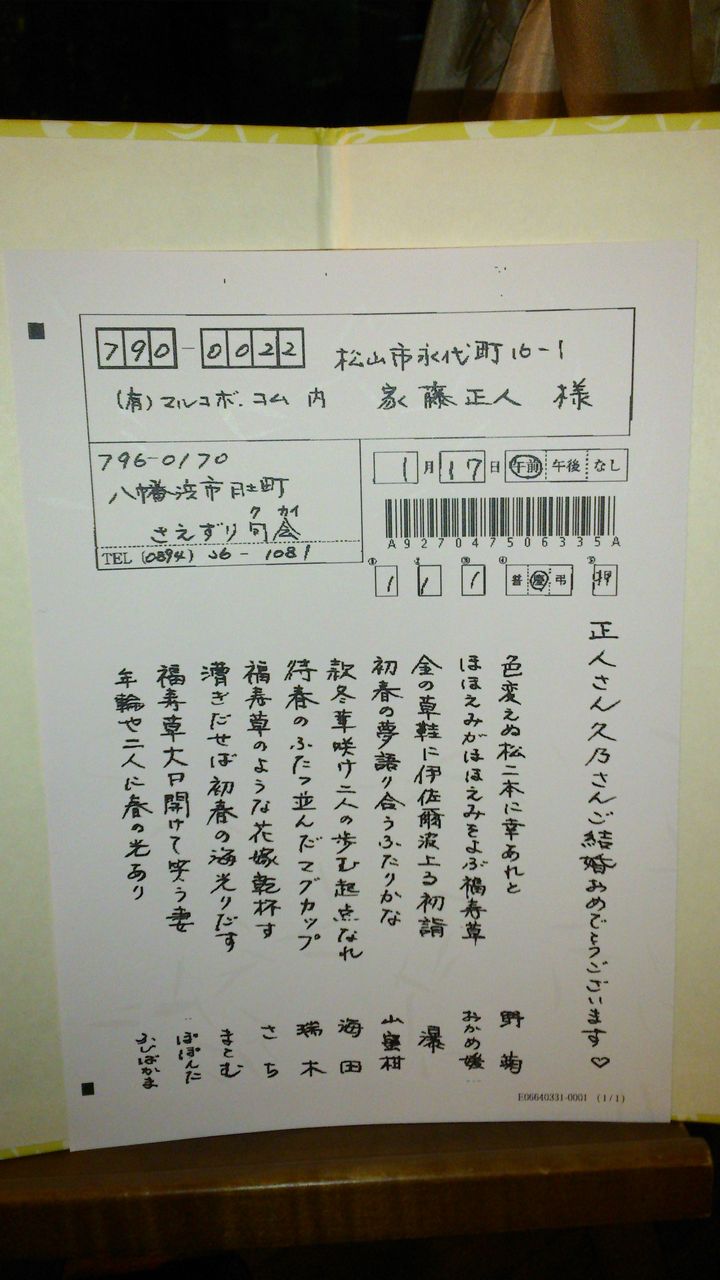 790-0022 松山市永代町16-1
(有)マルコボ.コム 内 家藤正人 様
796-0170
八幡浜市日土町
クカイ
さえずり句会
TEL (0894) 26-1081
1月17日 午前 午後 なし
A927047506335A
① ② ③ ④ ⑤
1 1 1 普 慶 弔 押
正人さん久乃さんご結婚おめでとうございます♡
色変えぬ松二本に幸あれと 野菊
ほほえみがほほえみをよぶ福寿草 おかめ媛
金の草鞋に伊佐爾波上る初詣 瀑
初春の夢語り合うふたりかな 山蜜柑
款冬華咲け二人の歩む起点なれ 海田
待春のふたつ並んだマグカップ 瑞木
福寿草のような花嫁乾杯す さち
漕ぎだせば初春の海光りだす まとむ
福寿草大口開けて笑う妻 ぽぽんた
年輪や二人に春の光あり ふじばかま
E06640331-0001 (1/1)